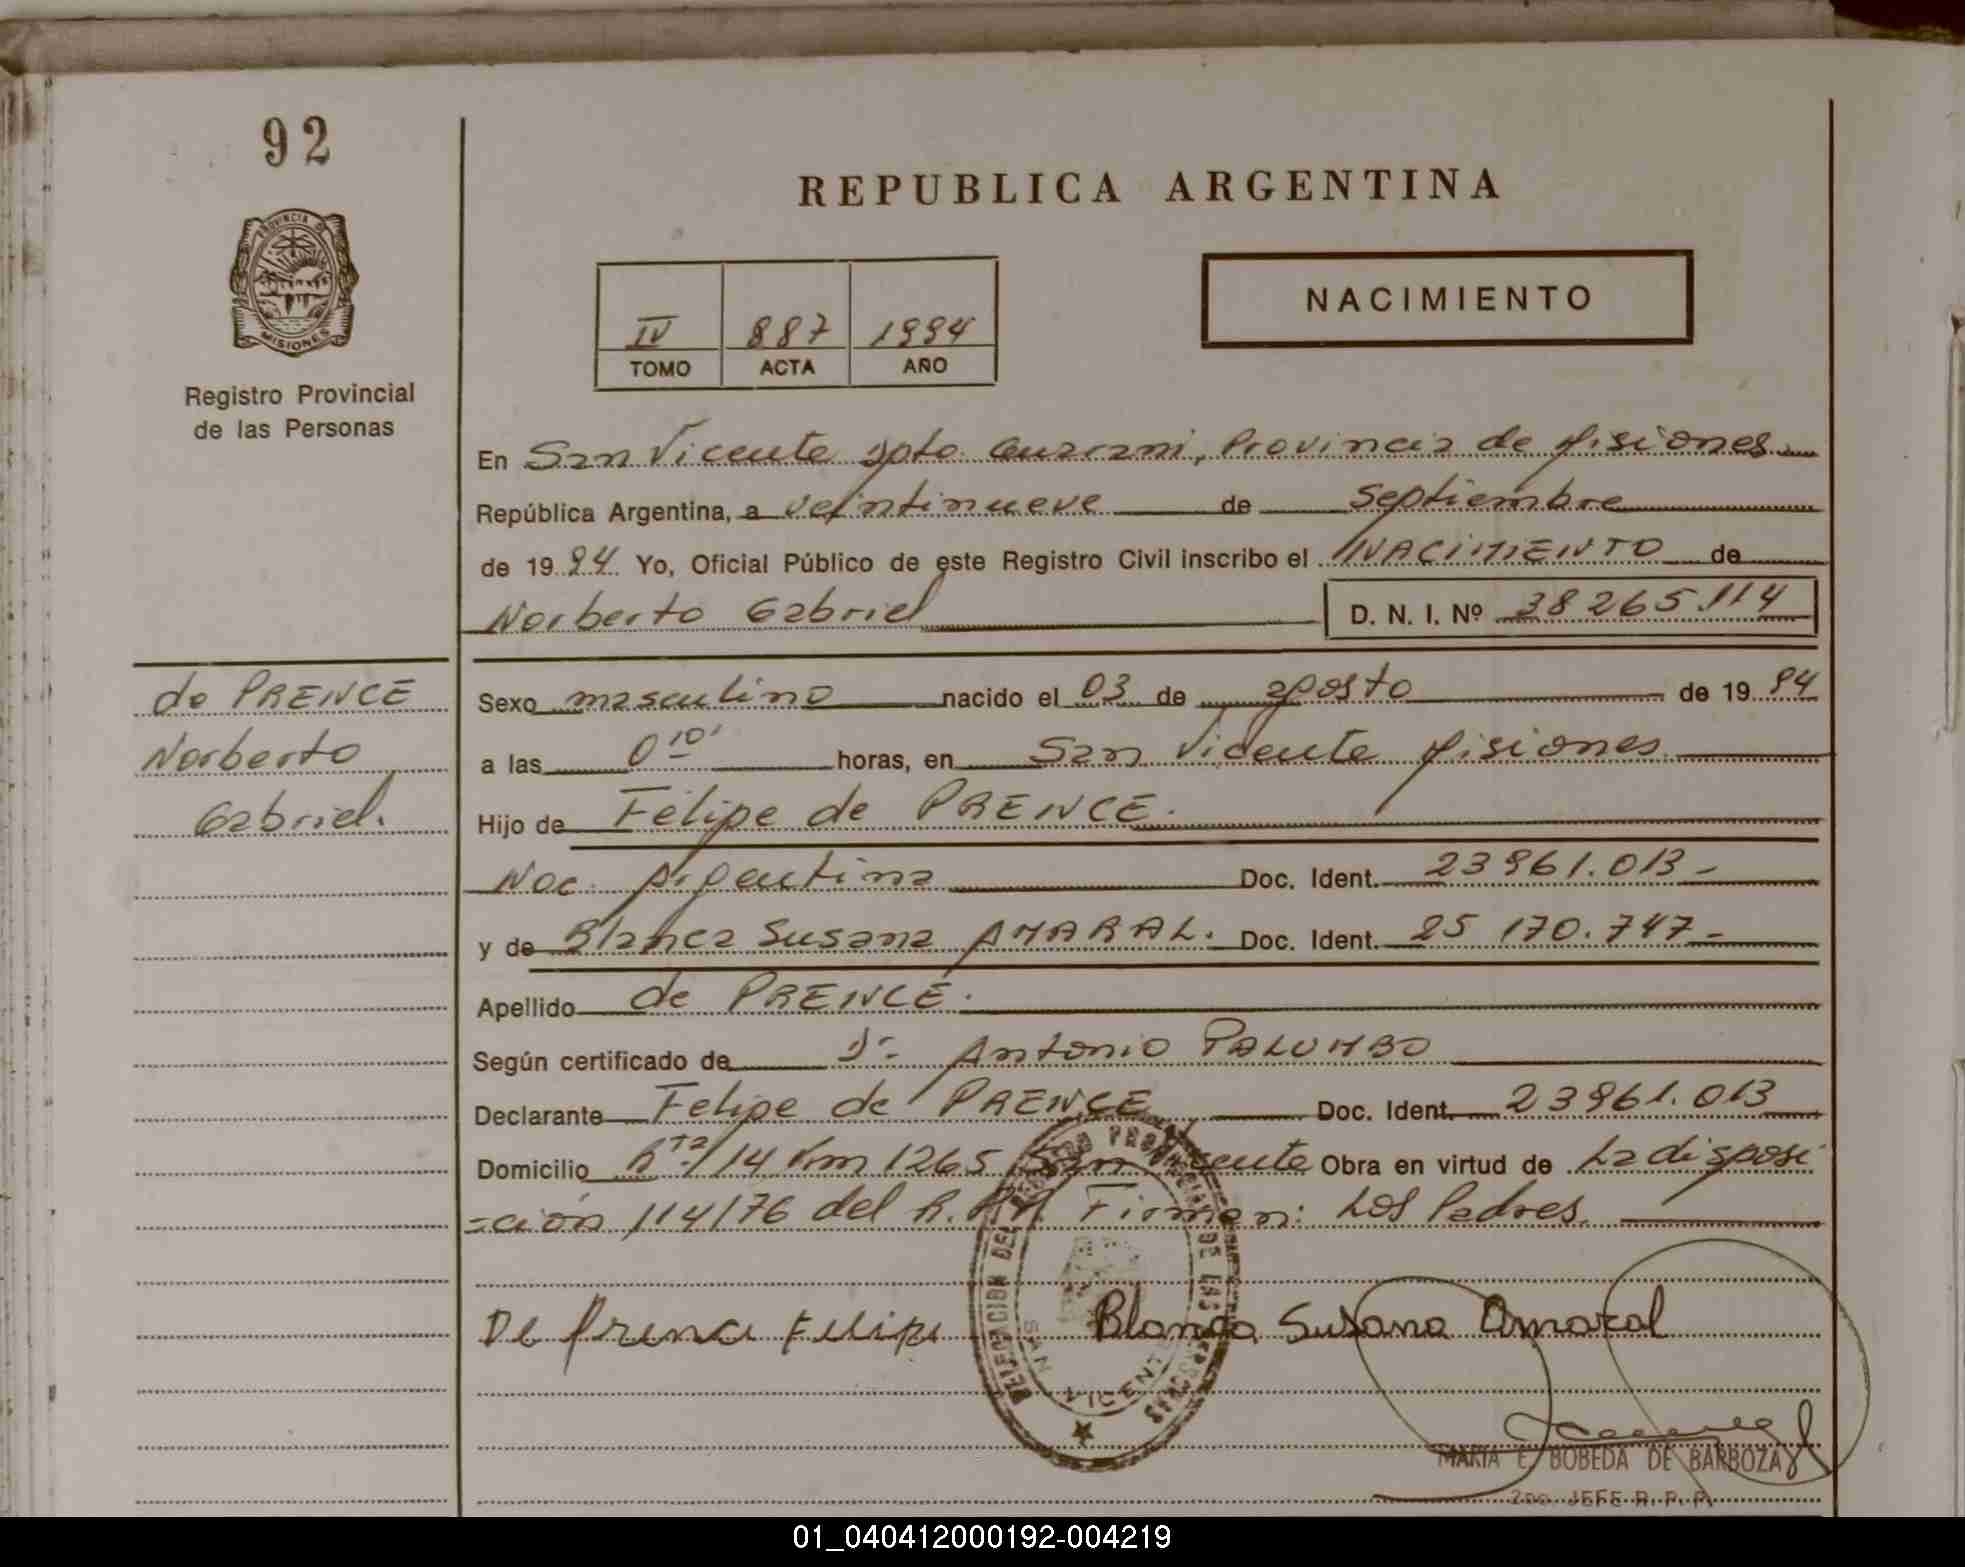 92
REPUBLICA ARGENTINA
PROVINCIA DE
MISIONES
Registro Provincial
de las Personas
NACIMIENTO
IV 887 1994
TOMO ACTA AÑO
En San Vicente Dpto. Guarani, Provincia de Misiones
República Argentina, a veintinueve de septiembre
de 1994 Yo, Oficial Público de este Registro Civil inscribo el NACIMIENTO de
Norberto Gabriel D. N. I. Nº 38265.114
de PRENCE
Norberto
Gabriel.
Sexo masculino nacido el 03 de agosto de 1994
a las 0 10' horas, en San Vicente Misiones
Hijo de Felipe de PRENCE.
Nac. Argentina Doc. Ident. 23961.013-
y de Blanca Susana AMARAL. Doc. Ident. 25 170.747-
Apellido de PRENCE.
Según certificado de Dr. Antonio PALUMBO
Declarante Felipe de PRENCE Doc. Ident. 23961.013
Domicilio Rta/14 Km 1265 San Vicente Obra en virtud de La disposi
-ción 114/76 del R.P.P. Firman: Los Padres.
De Prence Felipe Blanca Susana Amaral
DELEGACION DEL REGISTRO PROVINCIAL DE LAS PERSONAS
SAN VICENTE
MARIA E. BOBEDA DE BARBOZA
2do. JEFE R. P. P.
01_040412000192-004219